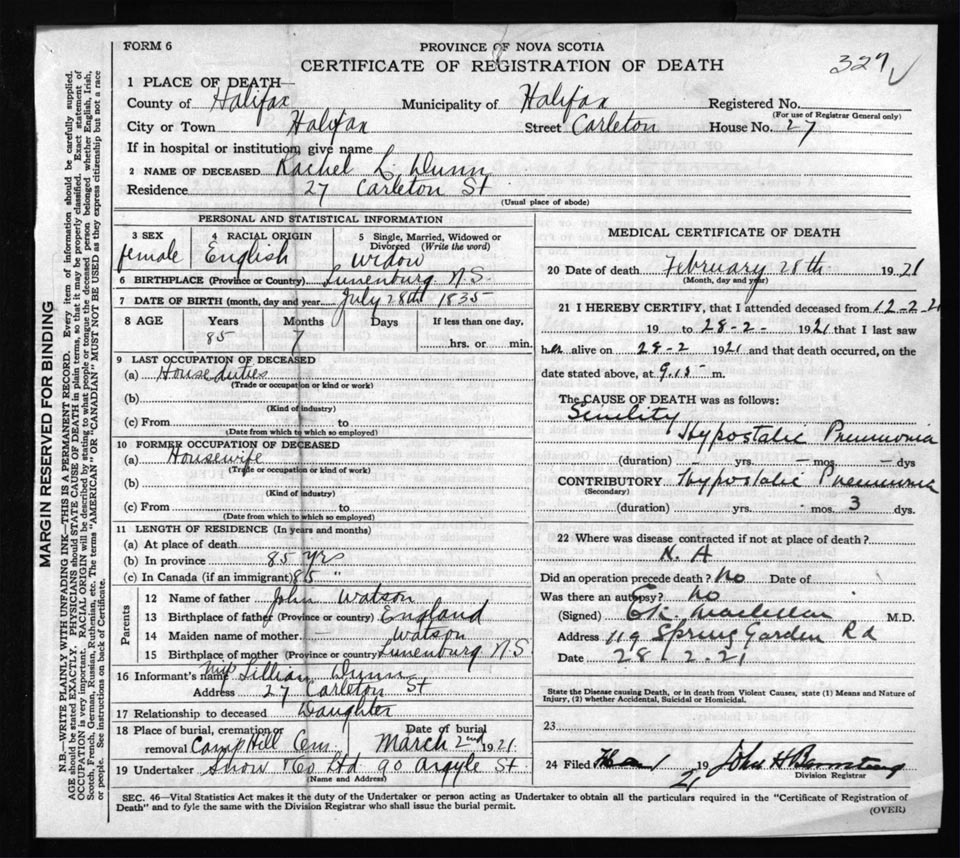 FORM 6
PROVINCE OF NOVA SCOTIA
CERTIFICATE OF REGISTRATION OF DEATH
329
1 PLACE OF DEATH
County of Halifax Municipality of Halifax Registered No.
(For use of Registrar General only)
City or Town Halifax Street Carleton House No. 27
If in hospital or institution, give name
2 NAME OF DECEASED Rachel L. Dunn
Residence 27 Carleton St
(Usual place of abode)
PERSONAL AND STATISTICAL INFORMATION
3 SEX 4 RACIAL ORIGIN 5 Single, Married, Widowed or Divorced (Write the word)
female English widow
6 BIRTHPLACE (Province or Country) Lunenburg N.S.
7 DATE OF BIRTH (month, day and year) July 28th 1835
8 AGE Years Months Days If less than one day,
85 7 hrs. or min.
9 LAST OCCUPATION OF DECEASED
(a) House duties
(Trade or occupation or kind or work)
(b)
(Kind of industry)
(c) From to
(Date from which to which so employed)
10 FORMER OCCUPATION OF DECEASED
(a) Housewife
(Trade or occupation or kind of work)
(b)
(Kind of industry)
(c) From to
(Date from which to which so employed)
11 LENGTH OF RESIDENCE (In years and months)
(a) At place of death
(b) In province 85 yrs
(c) In Canada (if an immigrant) 85 "
Parents
12 Name of father John Watson
13 Birthplace of father (Province or country) England
14 Maiden name of mother Watson
15 Birthplace of mother (Province or country) Lunenburg N.S
16 Informant's name Miss Lillian Dunn
Address 27 Carleton St
17 Relationship to deceased Daughter
18 Place of burial, cremation or removal Camp Hill Cem. Date of burial March 2nd 1921
19 Undertaker Snow & Co Ltd 90 Argyle St
(Name and Address)
MEDICAL CERTIFICATE OF DEATH
20 Date of death February 28th 1921
(Month, day and year)
21 I HEREBY CERTIFY, that I attended deceased from 12-2-21
19 to 28-2- 1921 that I last saw
her alive on 28-2 1921 and that death occurred, on the
date stated above, at 9.15 m.
The CAUSE OF DEATH was as follows:
Senility
Hypostatic Pneumonia
(duration) - yrs. - mos. - dys
CONTRIBUTORY Hypostatic Pneumonia
(Secondary)
(duration) yrs. mos. 3 dys.
22 Where was disease contracted if not at place of death?
N. A
Did an operation precede death? No Date of
Was there an autopsy? No
(Signed) Maclellan M.D.
Address 119 Spring Garden Rd
Date 28.2.21
State the Disease causing Death, or in death from Violent Causes, state (1) Means and Nature of
Injury, (2) whether Accidental, Suicidal or Homicidal.
23
24 Filed 19 21 John H
Division Registrar
SEC. 46—Vital Statistics Act makes it the duty of the Undertaker or person acting as Undertaker to obtain all the particulars required in the "Certificate of Registration of
Death" and to fyle the same with the Division Registrar who shall issue the burial permit.
(OVER)
MARGIN RESERVED FOR BINDING
N.B.—WRITE PLAINLY WITH UNFADING INK—THIS IS A PERMANENT RECORD. Every item of information should be carefully supplied.
AGE should be stated EXACTLY. PHYSICIANS should STATE CAUSE OF DEATH in plain terms, so that it may be properly classified. Exact statement of
OCCUPATION is very important. RACIAL ORIGIN will be described by stating to what people or tongue the deceased person belonged whether English, Irish,
Scotch, French, German, Russian, Ruthenian, etc. The terms "AMERICAN" OR "CANADIAN" MUST NOT BE USED as they express citizenship but not a race
or people. See instructions on back of Certificate.